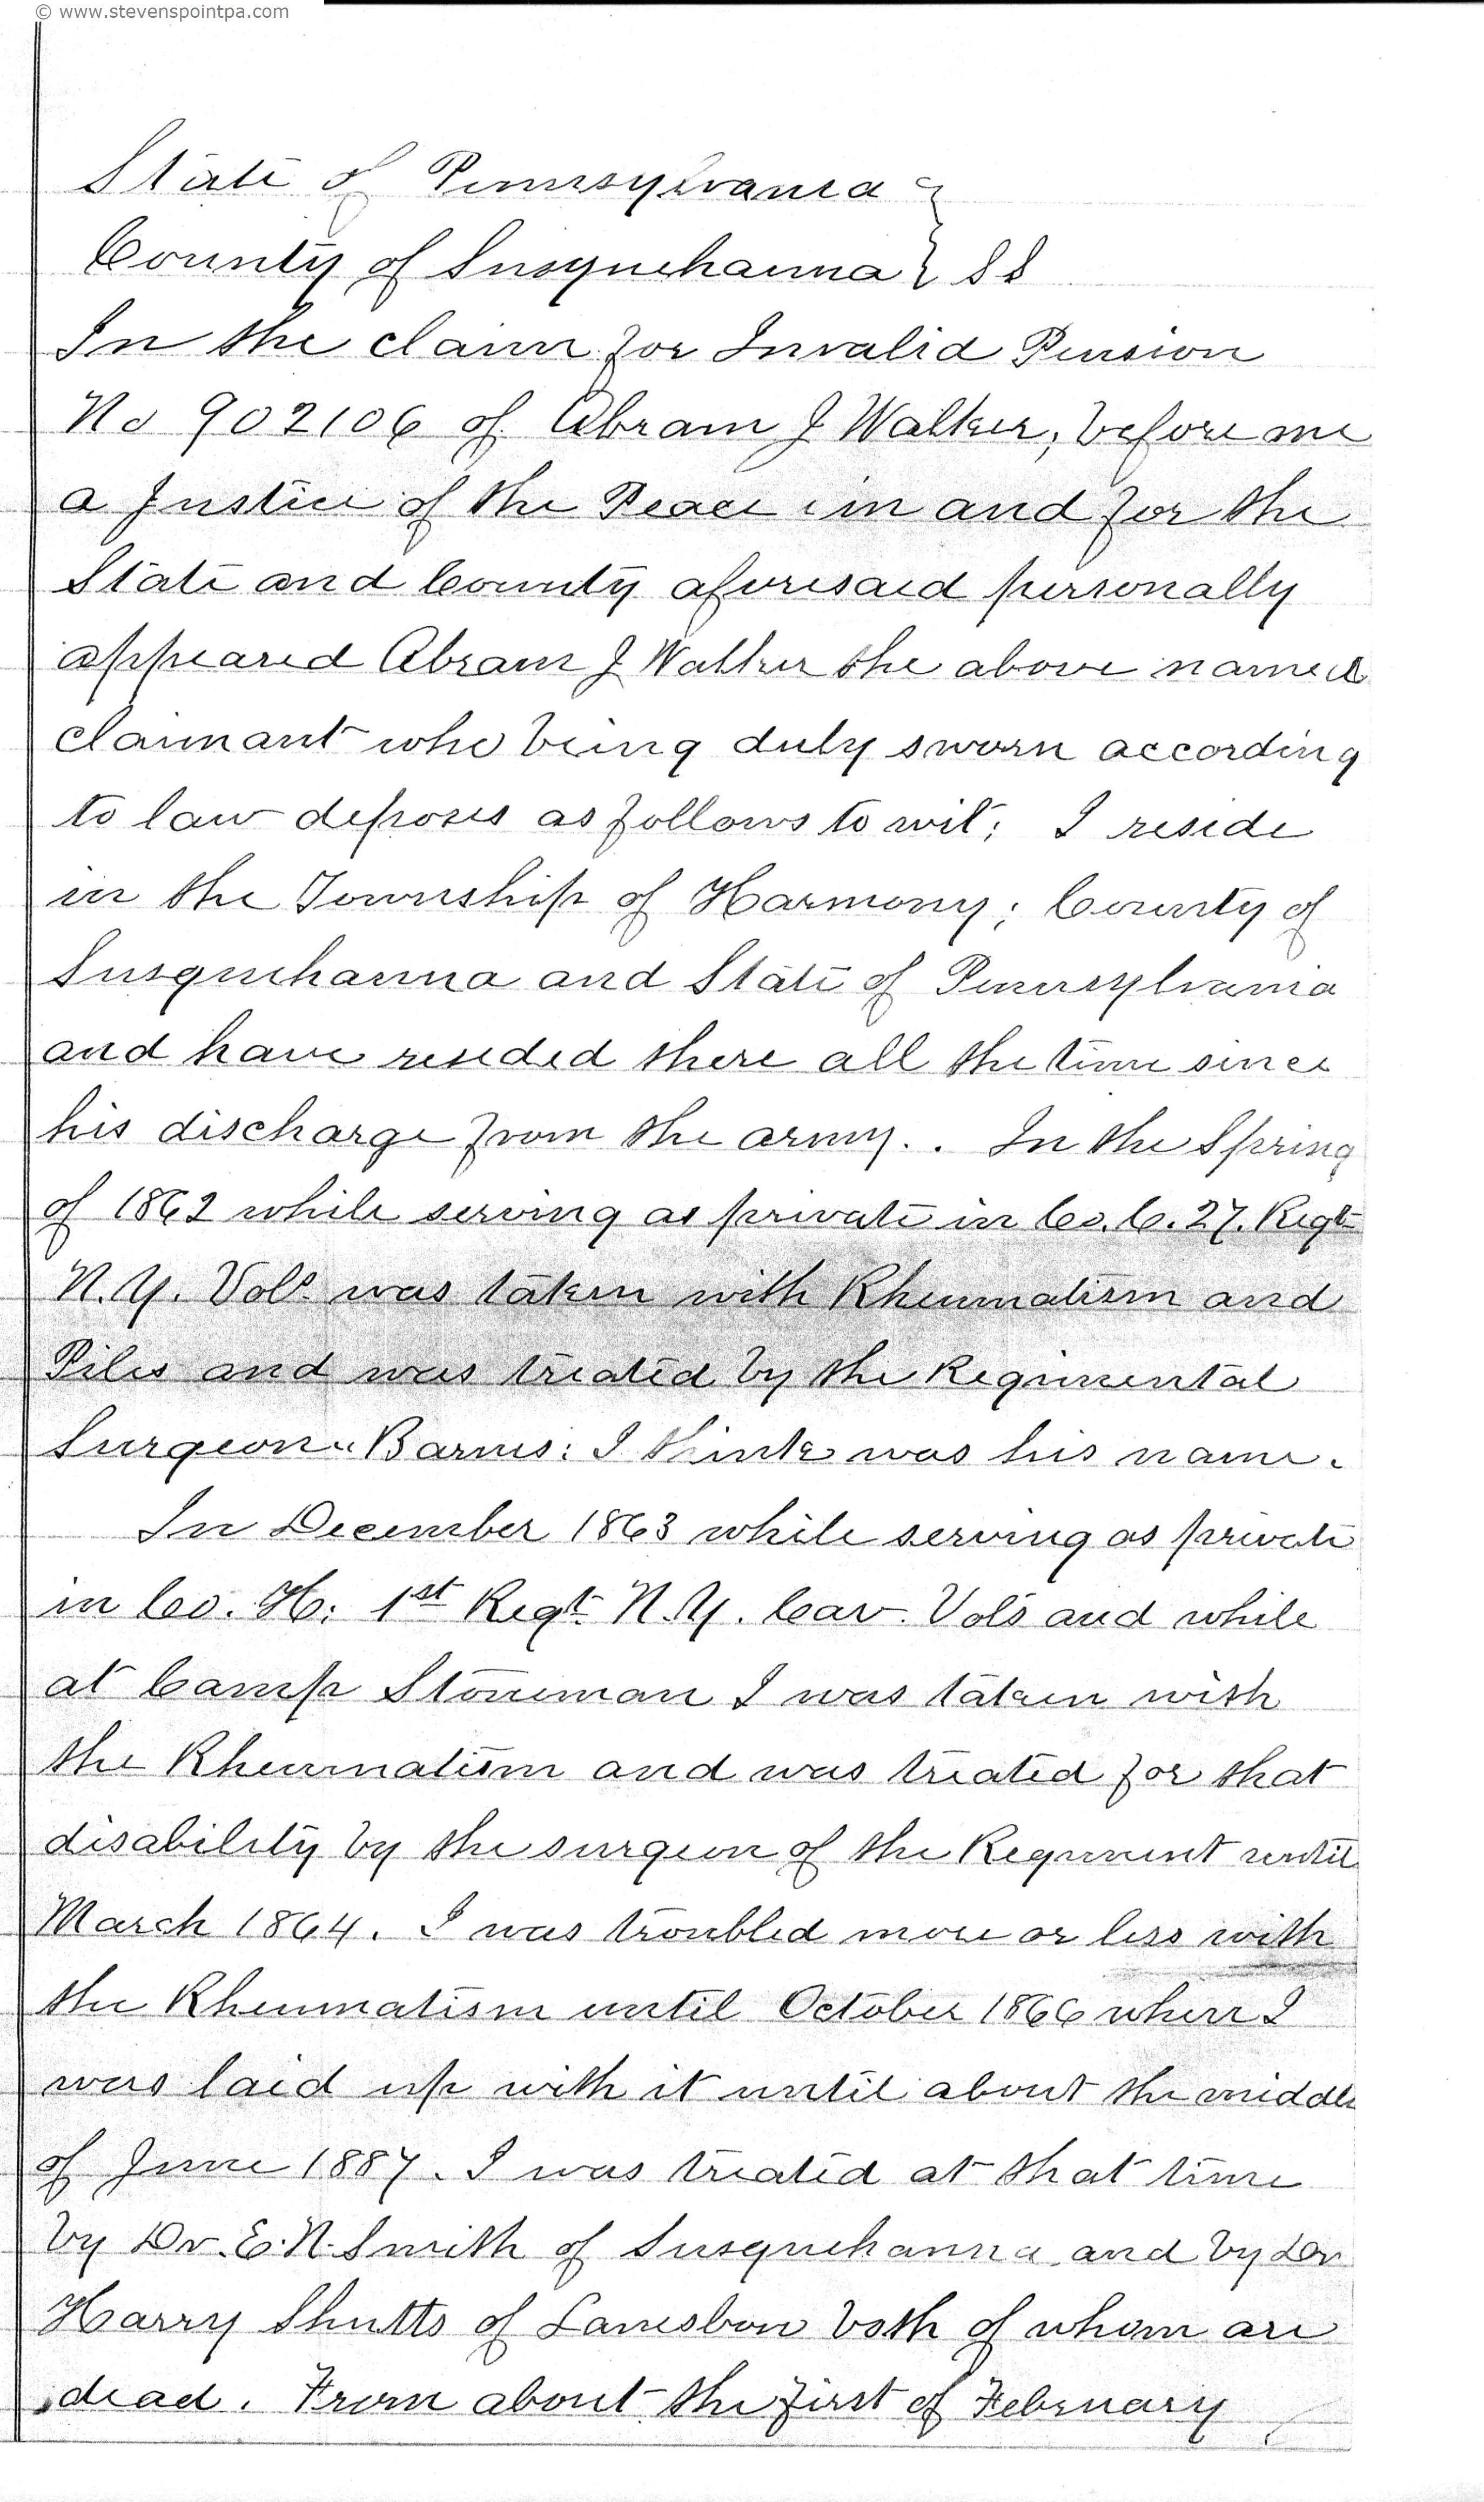 © www.stevenspointpa.com
State of Pennsylvania }
County of Susquehanna } SS
In the claim for Invalid Pension
No 902106 of Abram J Walker, before me
a Justice of the Peace in and for the
State and County aforesaid personally
appeared Abram J Walker the above named
claimant who being duly sworn according
to law deposes as follows to wit; I reside
in the Township of Harmony; County of
Susquehanna and State of Pennsylvania
and have resided there all the time since
his discharge from the army.. In the Spring
of 1862 while serving as private in Co. C. 27. Regt
N.Y. Vols was taken with Rheumatism and
Piles and was treated by the Regimental
Surgeon "Barnes: I think was his name.
In December 1863 while serving as private
in Co. H; 1st Regt N.Y. Cav. Vols and while
at Camp Stoneman I was taken with
the Rheumatism and was treated for that
disability by the surgeon of the Regiment until
March 1864. I was troubled more or less with
the Rheumatism until October 1866 when I
was laid up with it until about the middle
of June 1887. I was treated at that time
by Dr. E. N. Smith of Susquehanna and by Dr
Harry Shutts of Lanesboro both of whom are
dead. From about the first of February